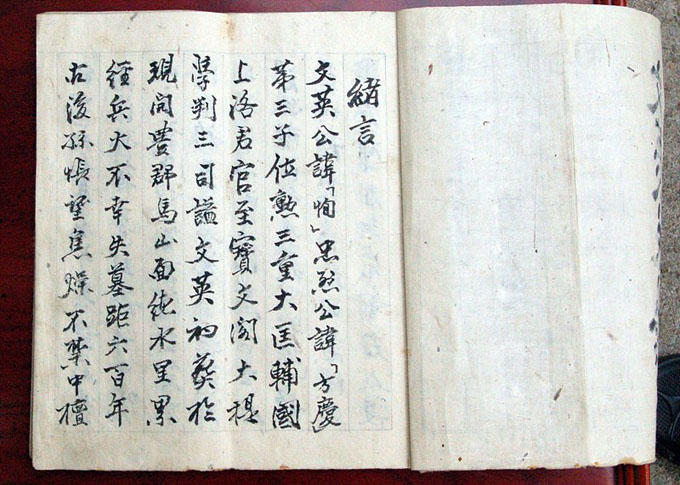 緒言
文英公諱「恂」忠烈公諱「方慶」
第三子位勲三重大匡輔國
上洛君官至寶文閣大提
學判三司謚文英初葬於
現開豊郡馬山面純水里累
經兵火不幸失墓距六百年
古後孫悵望焦燥不禁中檀